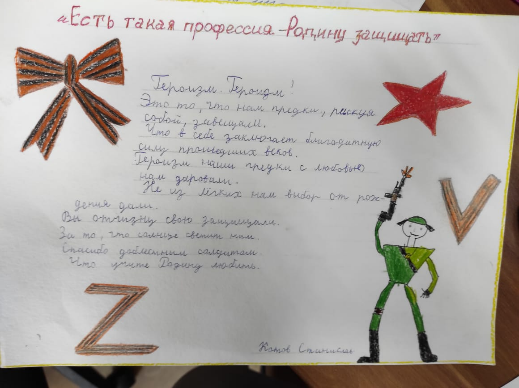 «Есть такая профессия-Родину защищать»
Героизм. Героизм!
Это то, что нам предки, рискуя
собой, завещали.
Что в себе заключает благодатную
силу прошедших веков.
Героизм наши предки с любовью
нам даровали.
Не из лёгких нам выбор от рож-
дения дали.
Вы отчизну свою защищали.
За то, что солнце светит нам.
Спасибо доблестным солдатам.
Что учите Родину любить.
V
Z
Котов Станислав